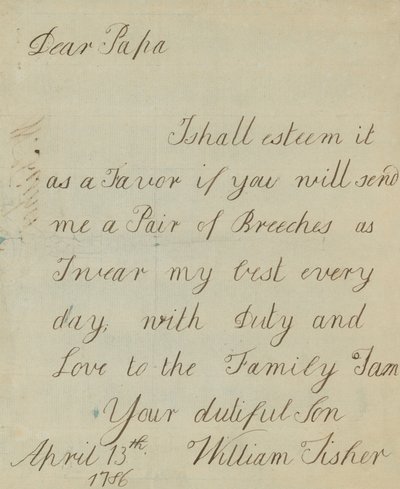 Dear Papa
I shall esteem it
as a Favor if you will send
me a Pair of Breeches as
I wear my best every
day, with Duty and
Love to the Family I am
Your dutiful Son
April 13th. William Fisher
1786